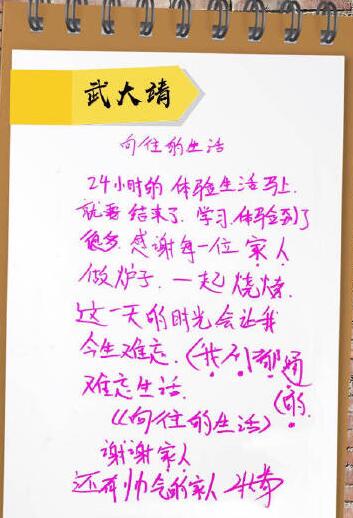 武大靖
向往的生活
24小时的体验生活马上
就要结束了.学习.体验到了
很多.感谢每一位家人
做炉子.一起烧烤.
这一天的时光会让我
今生难忘.(我们都通
难忘生活(的.
《向往的生活》
谢谢家人
还有帅气的家人